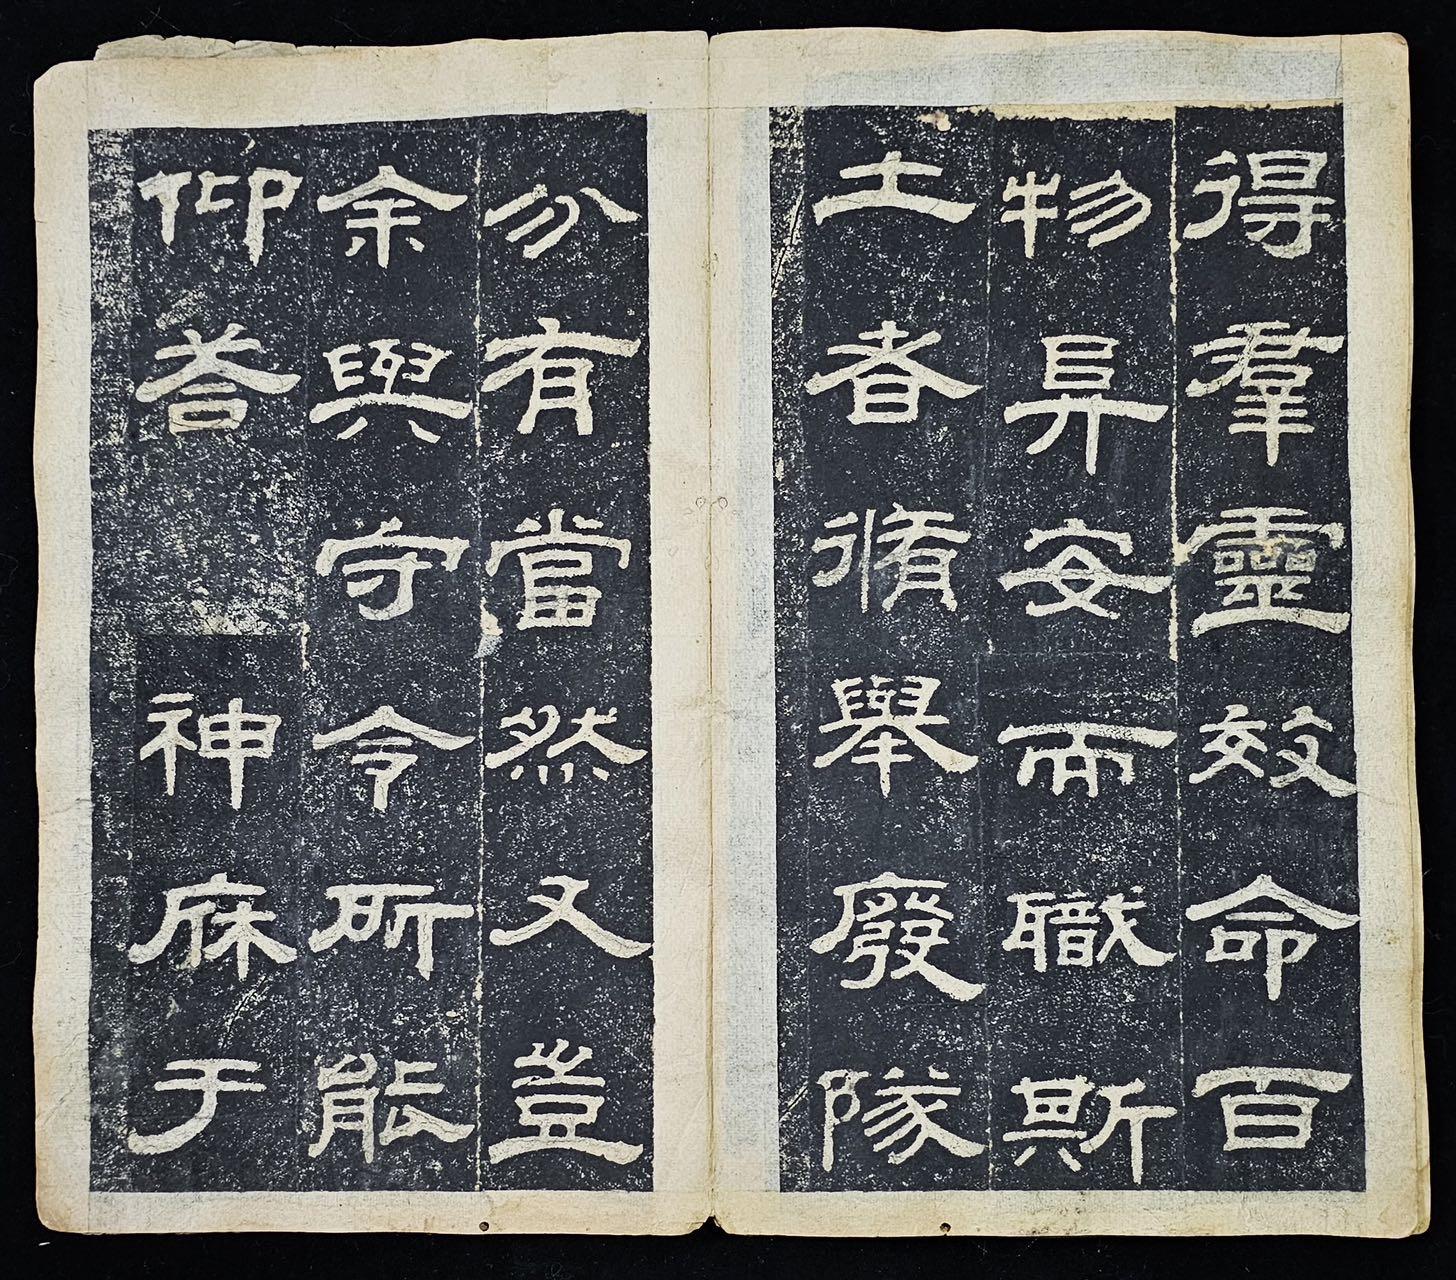 得羣靈效命百
物阜安而職斯
土者脩舉廢隊
分有當然又豈
余與守令所能
仰荅 神庥于